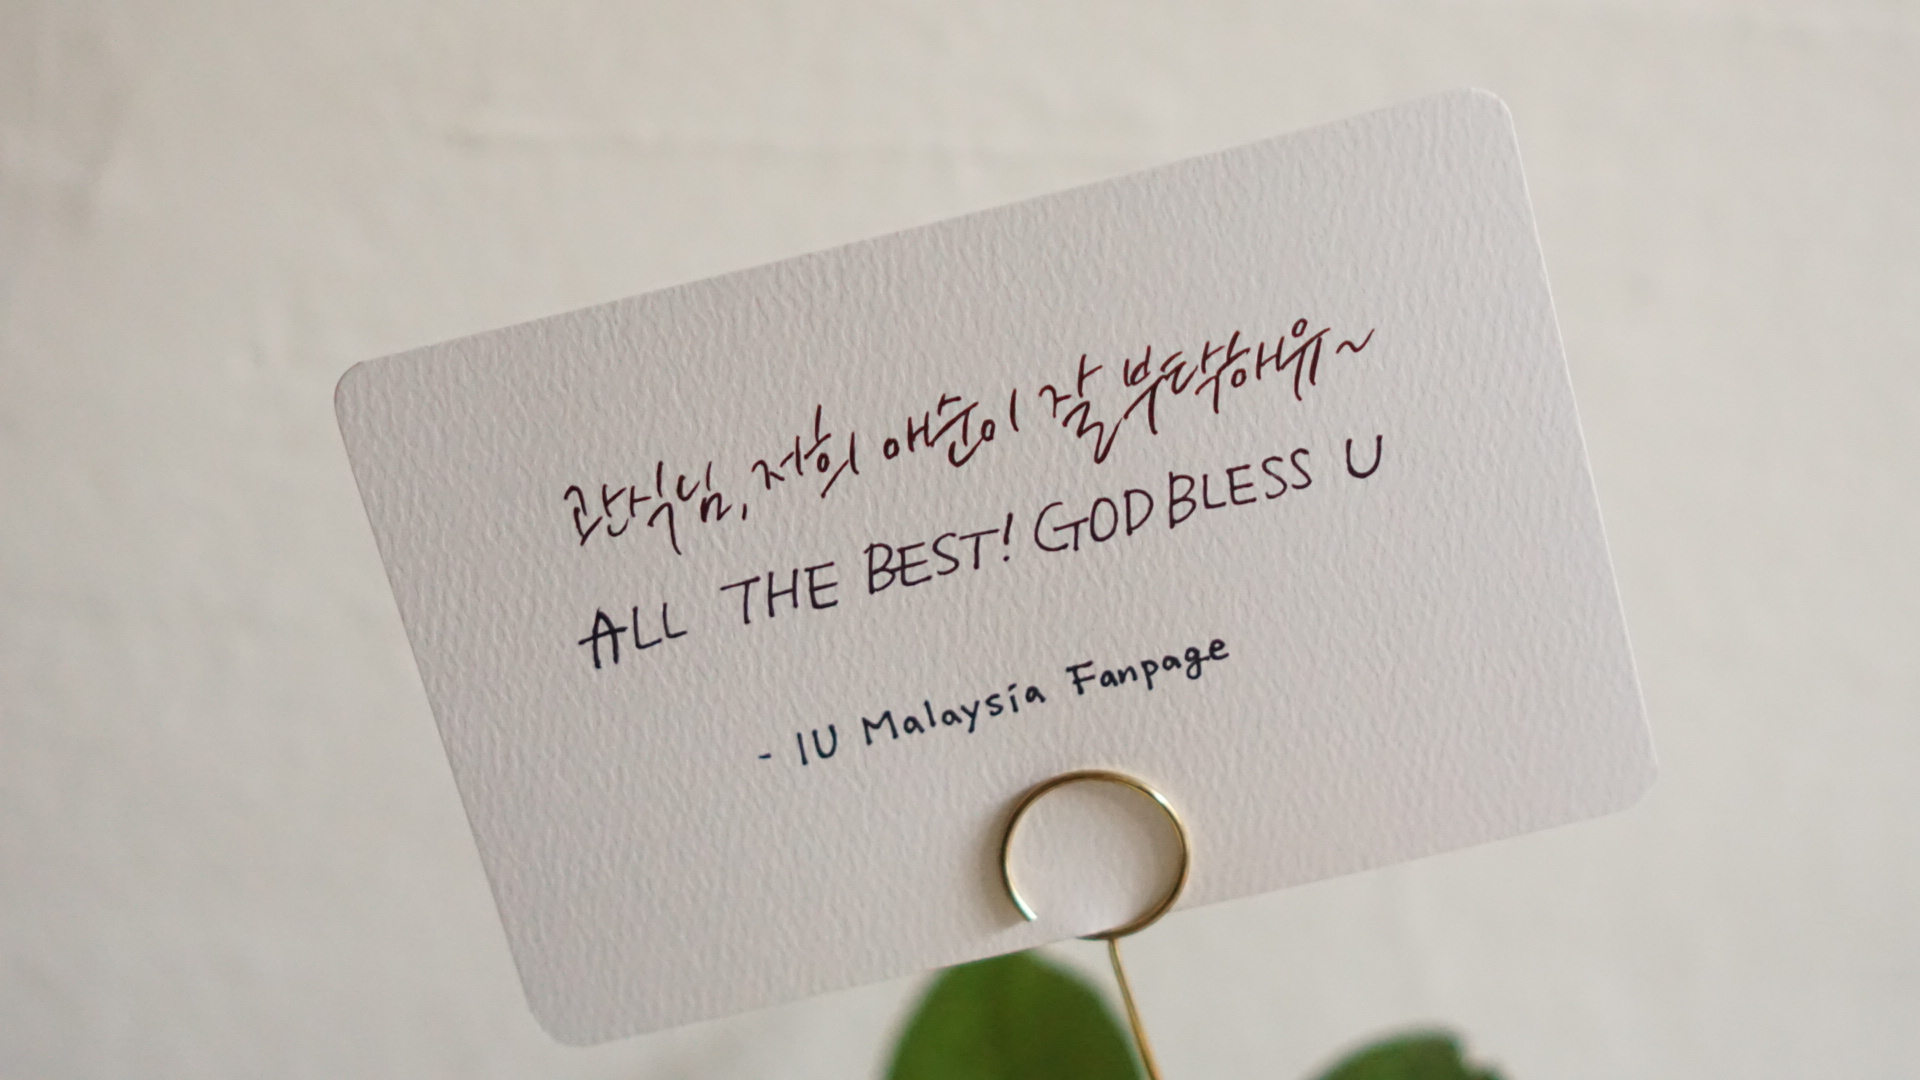 관식님, 저희 애순이 잘 부탁해유~
ALL THE BEST! GOD BLESS U
- IU Malaysia Fanpage